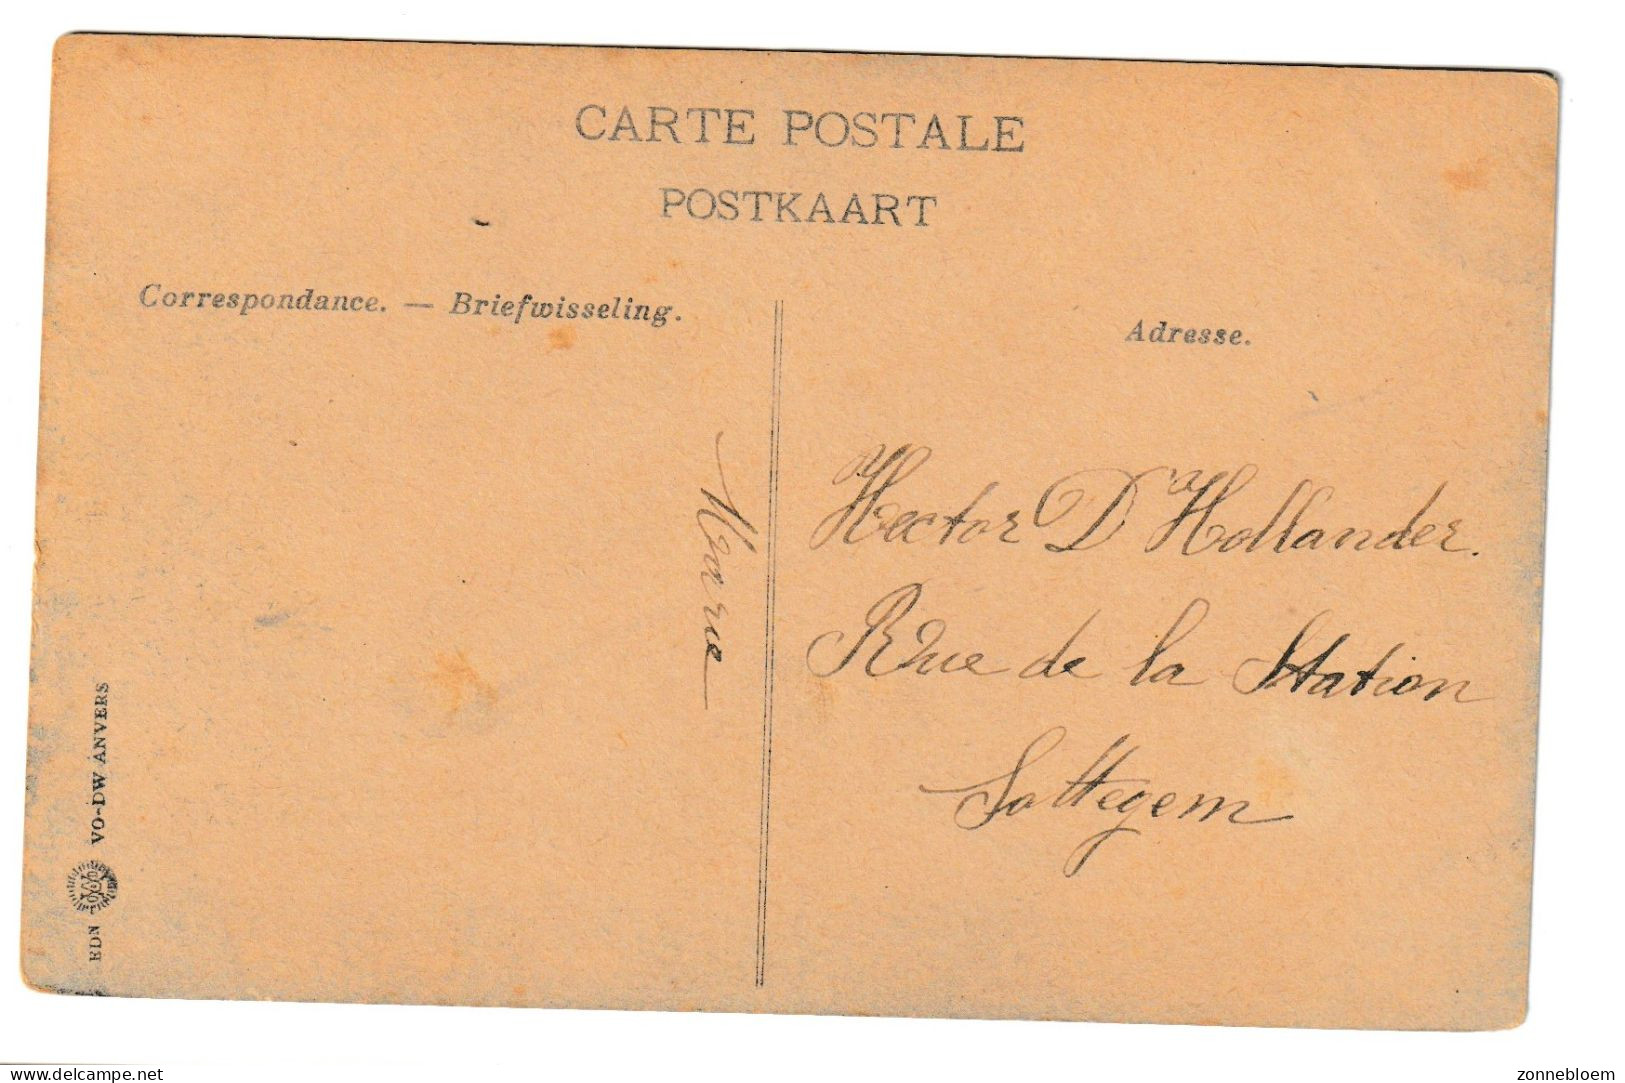 CARTE POSTALE
POSTKAART
Correspondance. — Briefwisseling.
Adresse.
Marie
Hector D'Hollander.
Rue de la Station
Sottegem
EDN VO-DW ANVERS
www.delcampe.net
zonnebloem